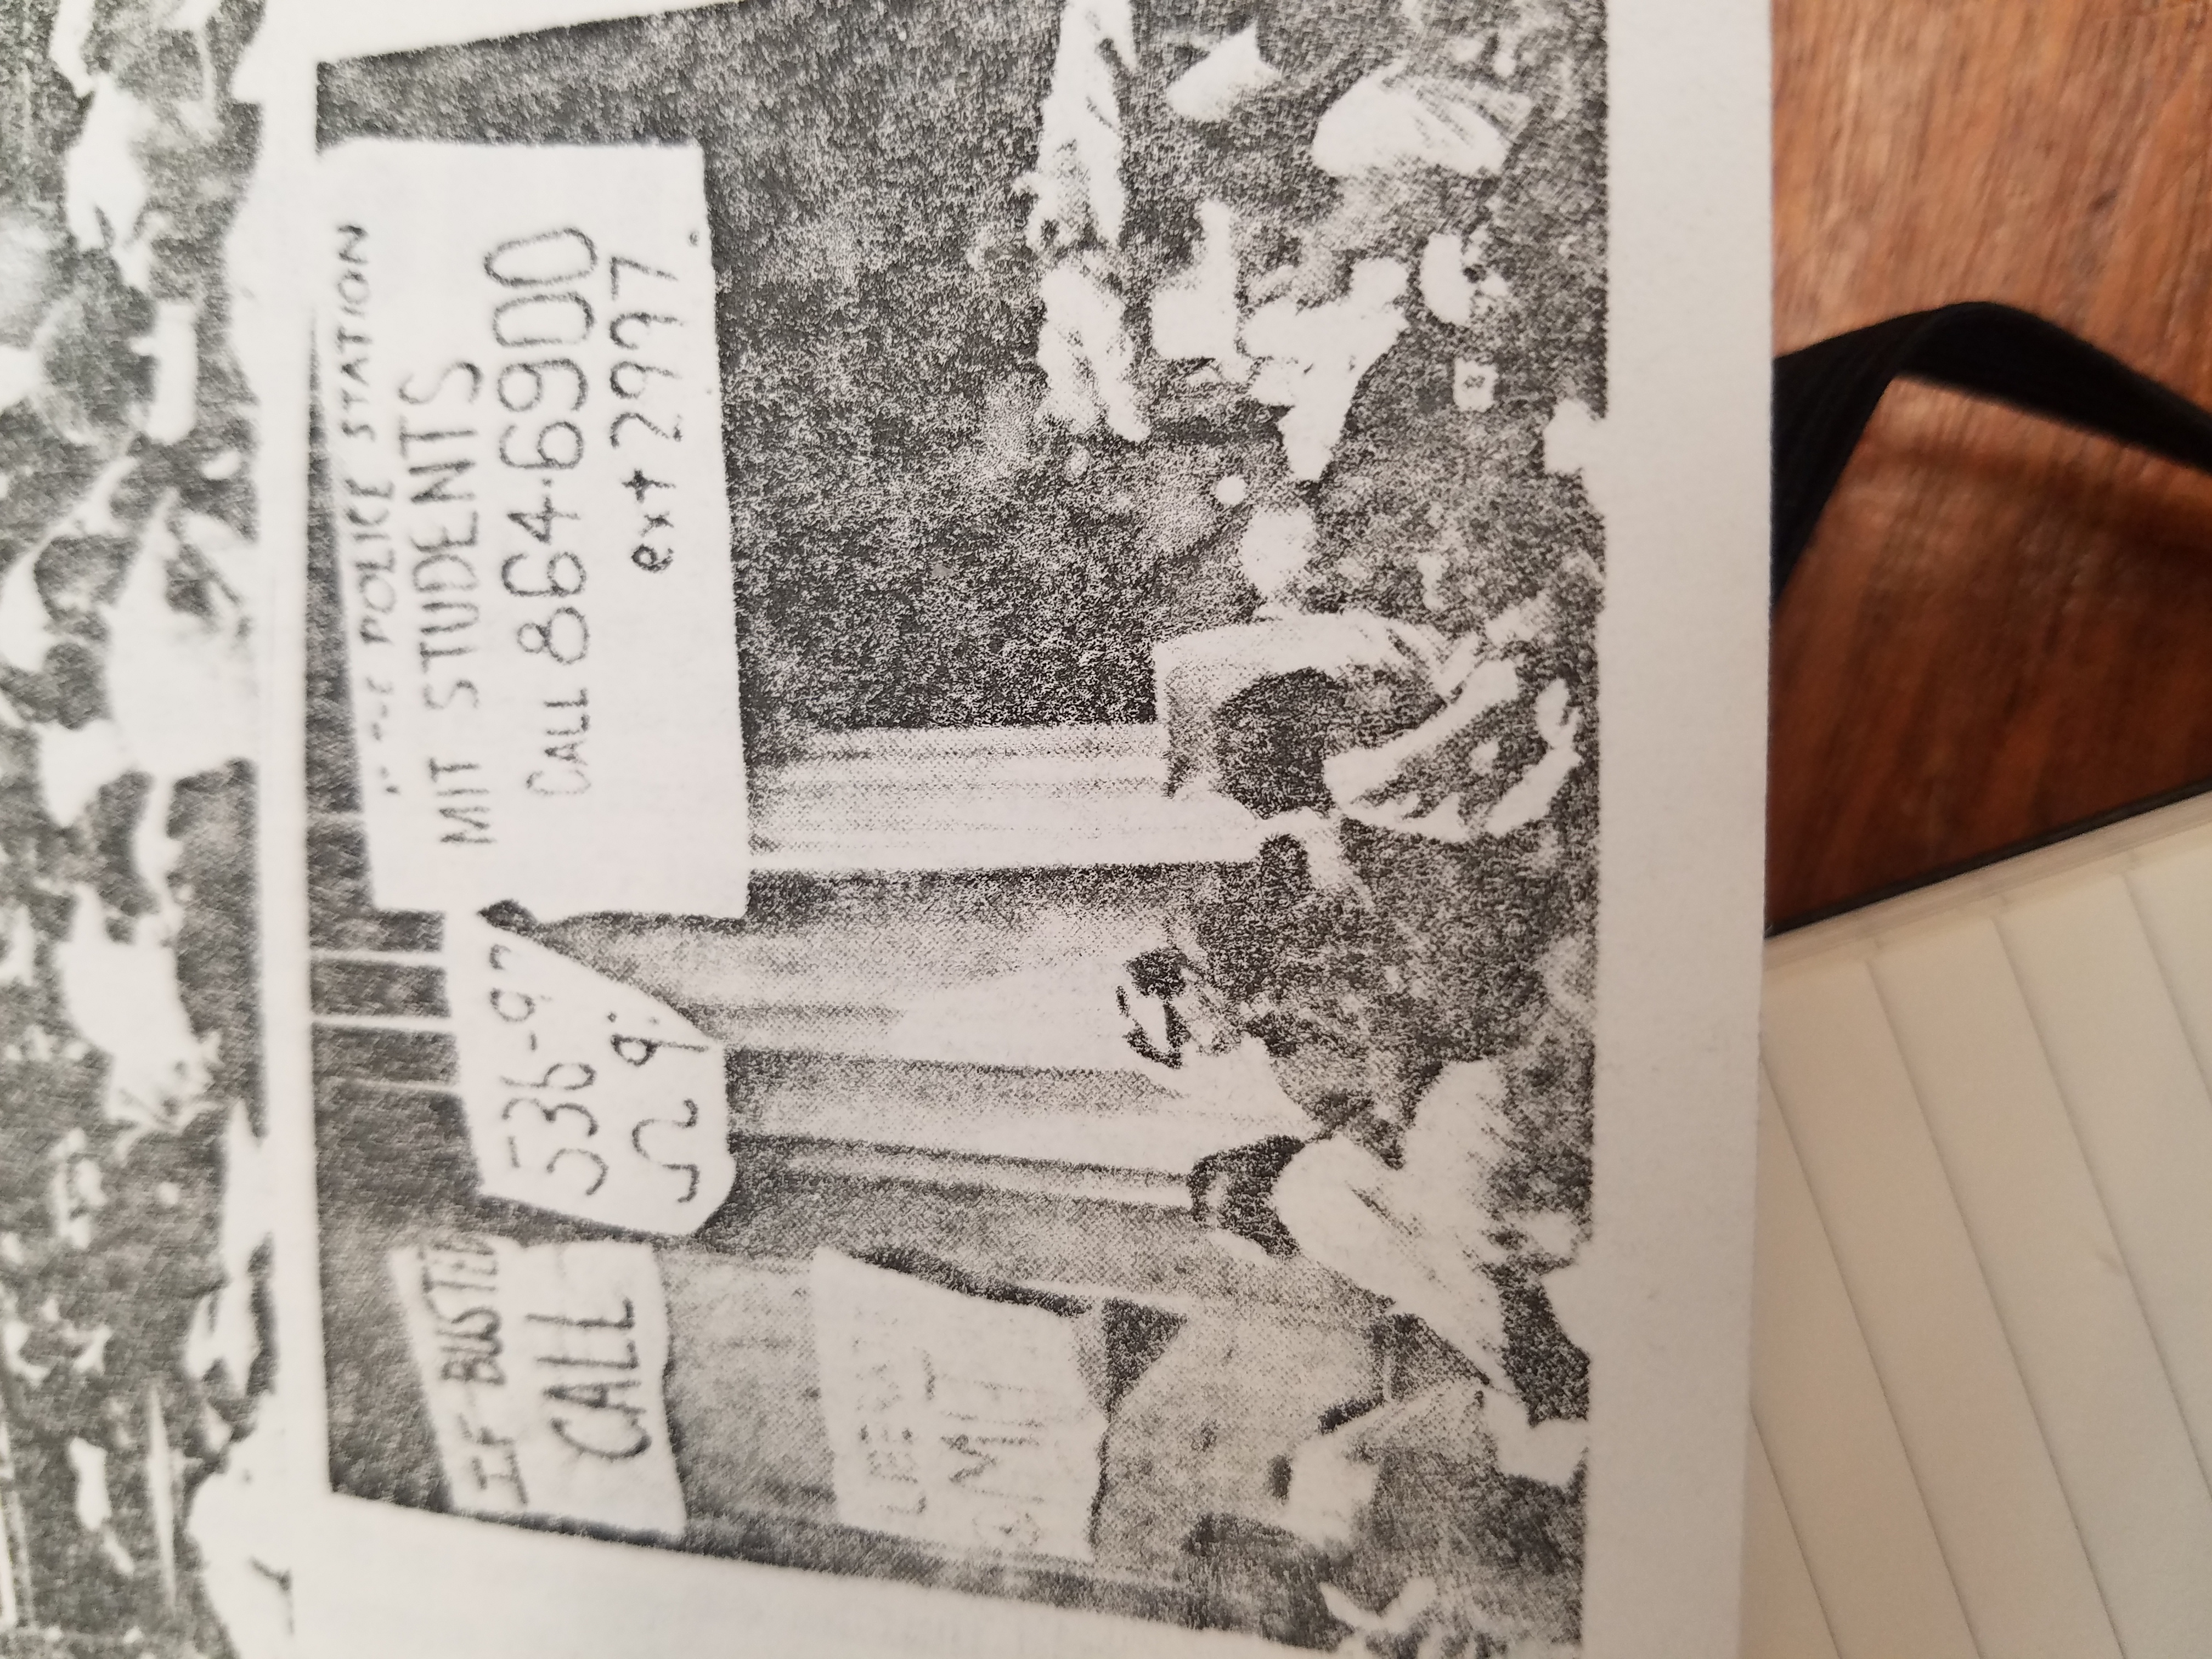 IF BUSTED
CALL
536-9
Ω 9
POLICE STATION
MIT STUDENTS
CALL 864-6900
ext 2997
MIT